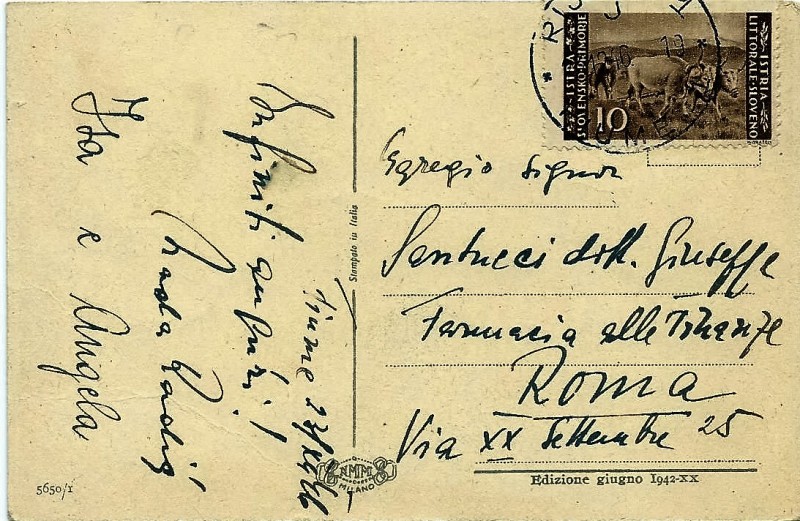 Fiume 23/XII/46
Infiniti auguri!
Nada Radić
Ita e Angela
5650/1
Stampato in Italia
NMM
MILANO
ISTRA
SLOVENSKO PRIMORJE
ISTRIA
LITTORALE SLOVENO
10
Egregio Signor
Santucci dott. Giuseppe
Farmacia alle Finanze
ROMA
Via XX Settembre 25
Edizione giugno 1942-XX